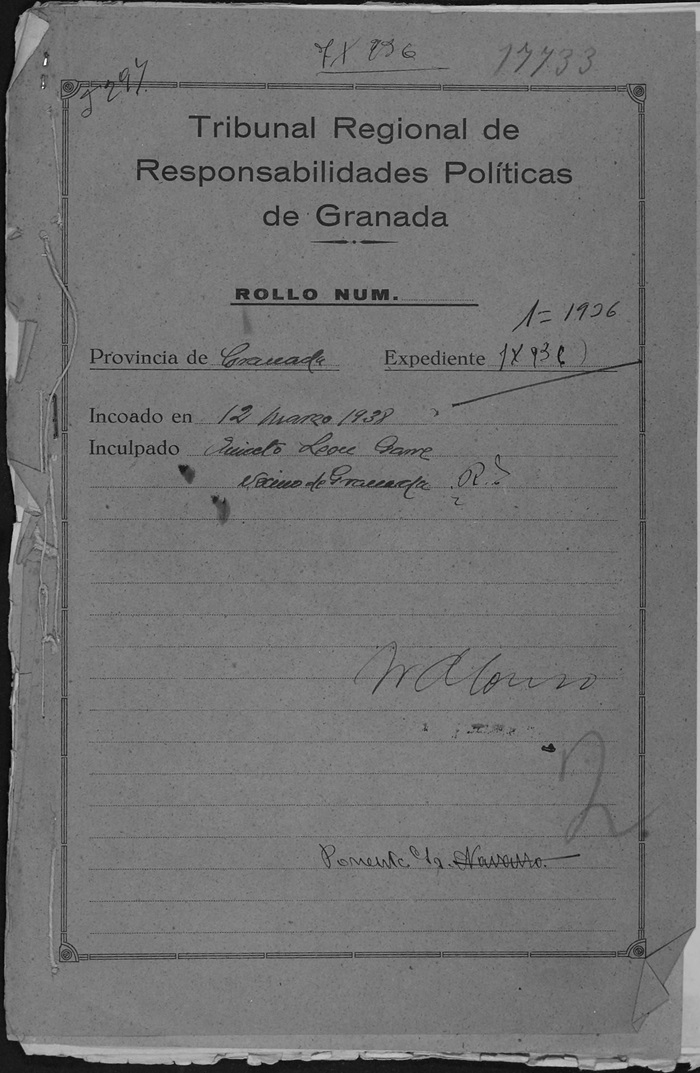 17733
Tribunal Regional de
Responsabilidades Políticas
de Granada
ROLLO NUM.
1= 1926
Provincia de Granada Expediente
Incoado en 12 Marzo 1938
Inculpado Leon
vecino de Granada
Alonso
2
Ponente Sr. Navarro.